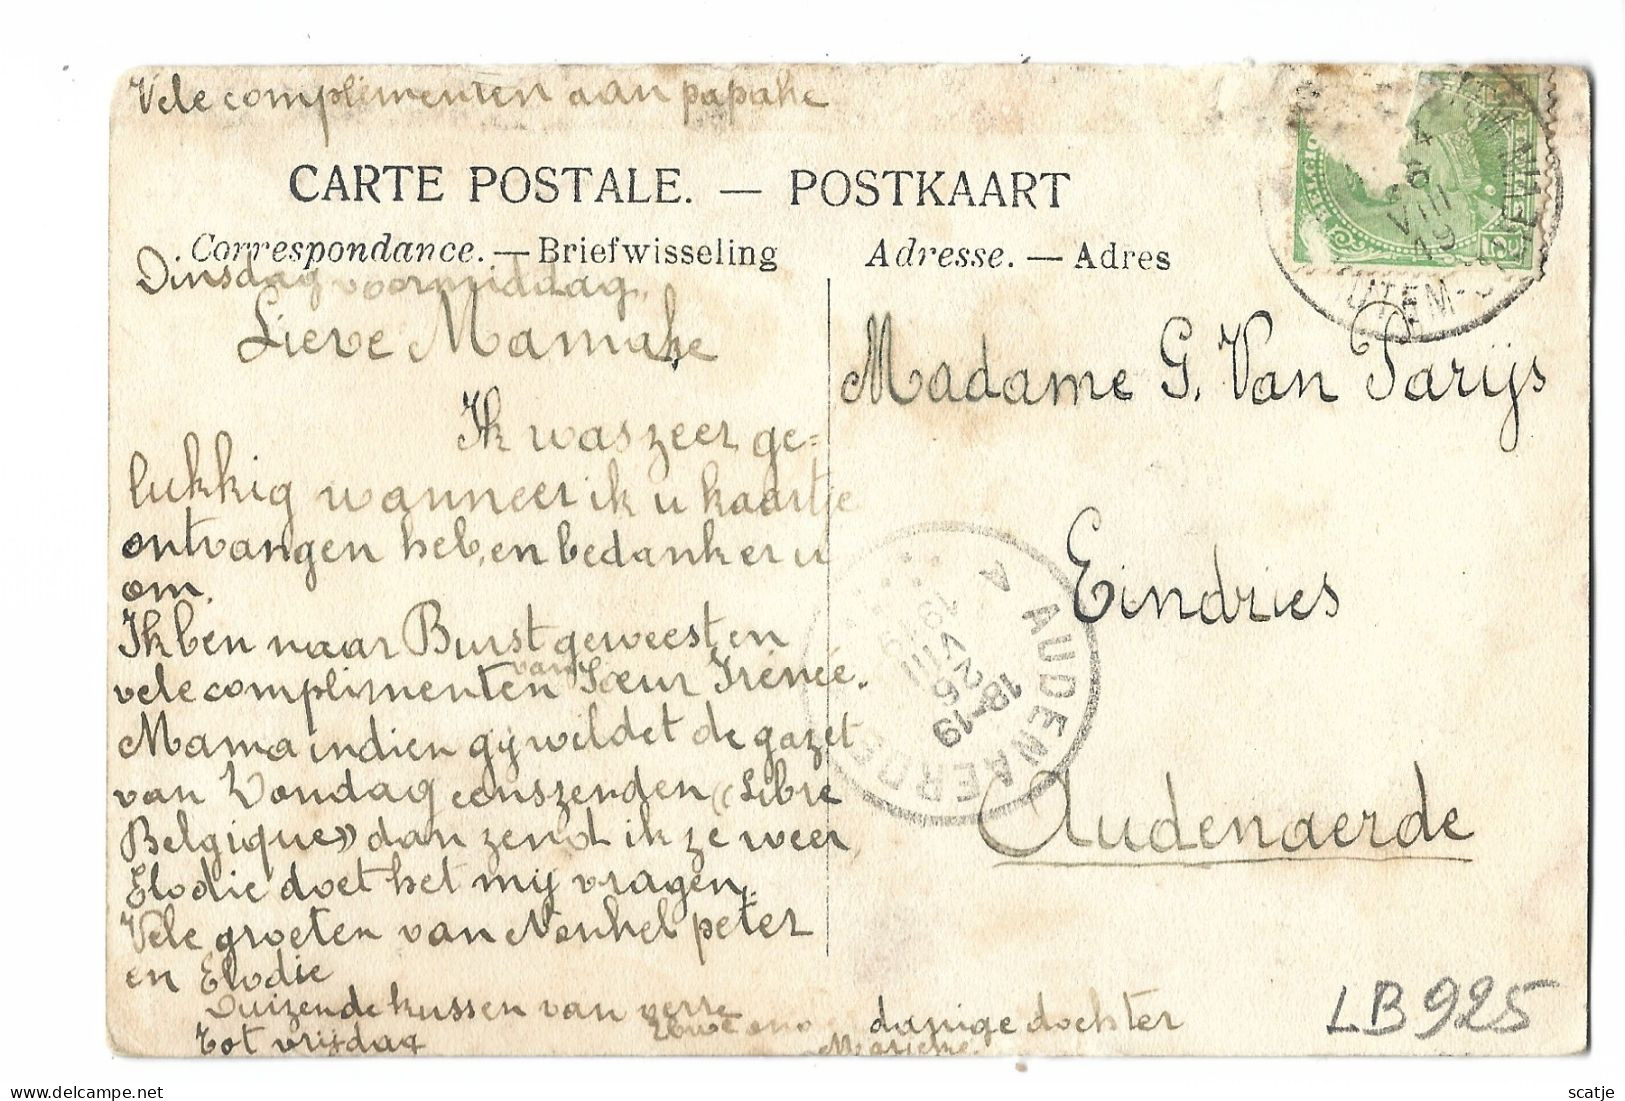 Vele complimenten aan papake
CARTE POSTALE. — POSTKAART
Correspondance. — Briefwisseling
Adresse. — Adres
Dinsdag voormiddag,
Lieve Mamake
Ik was zeer ge=
lukkig wanneer ik u kaartje
ontvangen heb, en bedanker u
om.
Ik ben naar Burst geweest en
vele complimenten van Sœur Irénée.
Mama indien gij wildet de gazet
van Vondag eens zenden "Libre
Belgique" dan zend ik ze weer,
Elodie doet het mij vragen.
Vele groeten van Nonkel peter
en Elodie
Duizende kussen van verre
danige dochter
Tot vrijdag
Madame G. Van Parijs
Eindries
Audenaerde
AUDENAERDE
A
18-19
26
VIII
19
LB 925
scatje